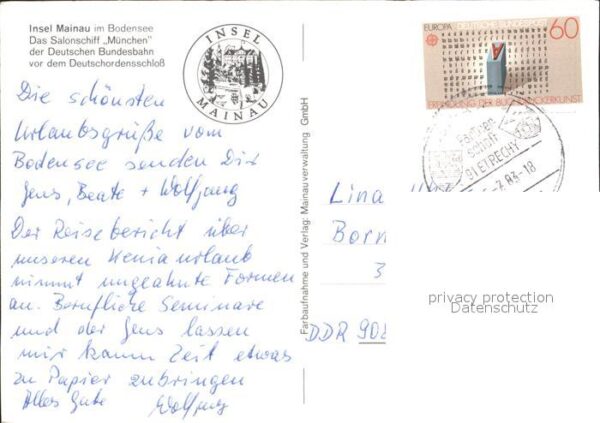 Insel Mainau im Bodensee
Das Salonschiff „München"
der Deutschen Bundesbahn
vor dem Deutschordensschloß
INSEL
MAINAU
EUROPA DEUTSCHE BUNDESPOST 60
ERFINDUNG DER BUCHDRUCKERKUNST
.7.83-18
Die schönsten
Urlaubsgrüße vom
Bodensee senden Dir
Jens, Beate + Wolfgang
Der Reisebericht über
unseren Keniaurlaub
nimmt ungeahnte Formen
an. Berufliche Seminare
und der Jens lassen
mir kaum Zeit etwas
zu Papier zubringen
Alles Gute Wolfgang
Farbaufnahme und Verlag: Mainauverwaltung GmbH
Lina
Born
3
DDR 902
privacy protection
Datenschutz